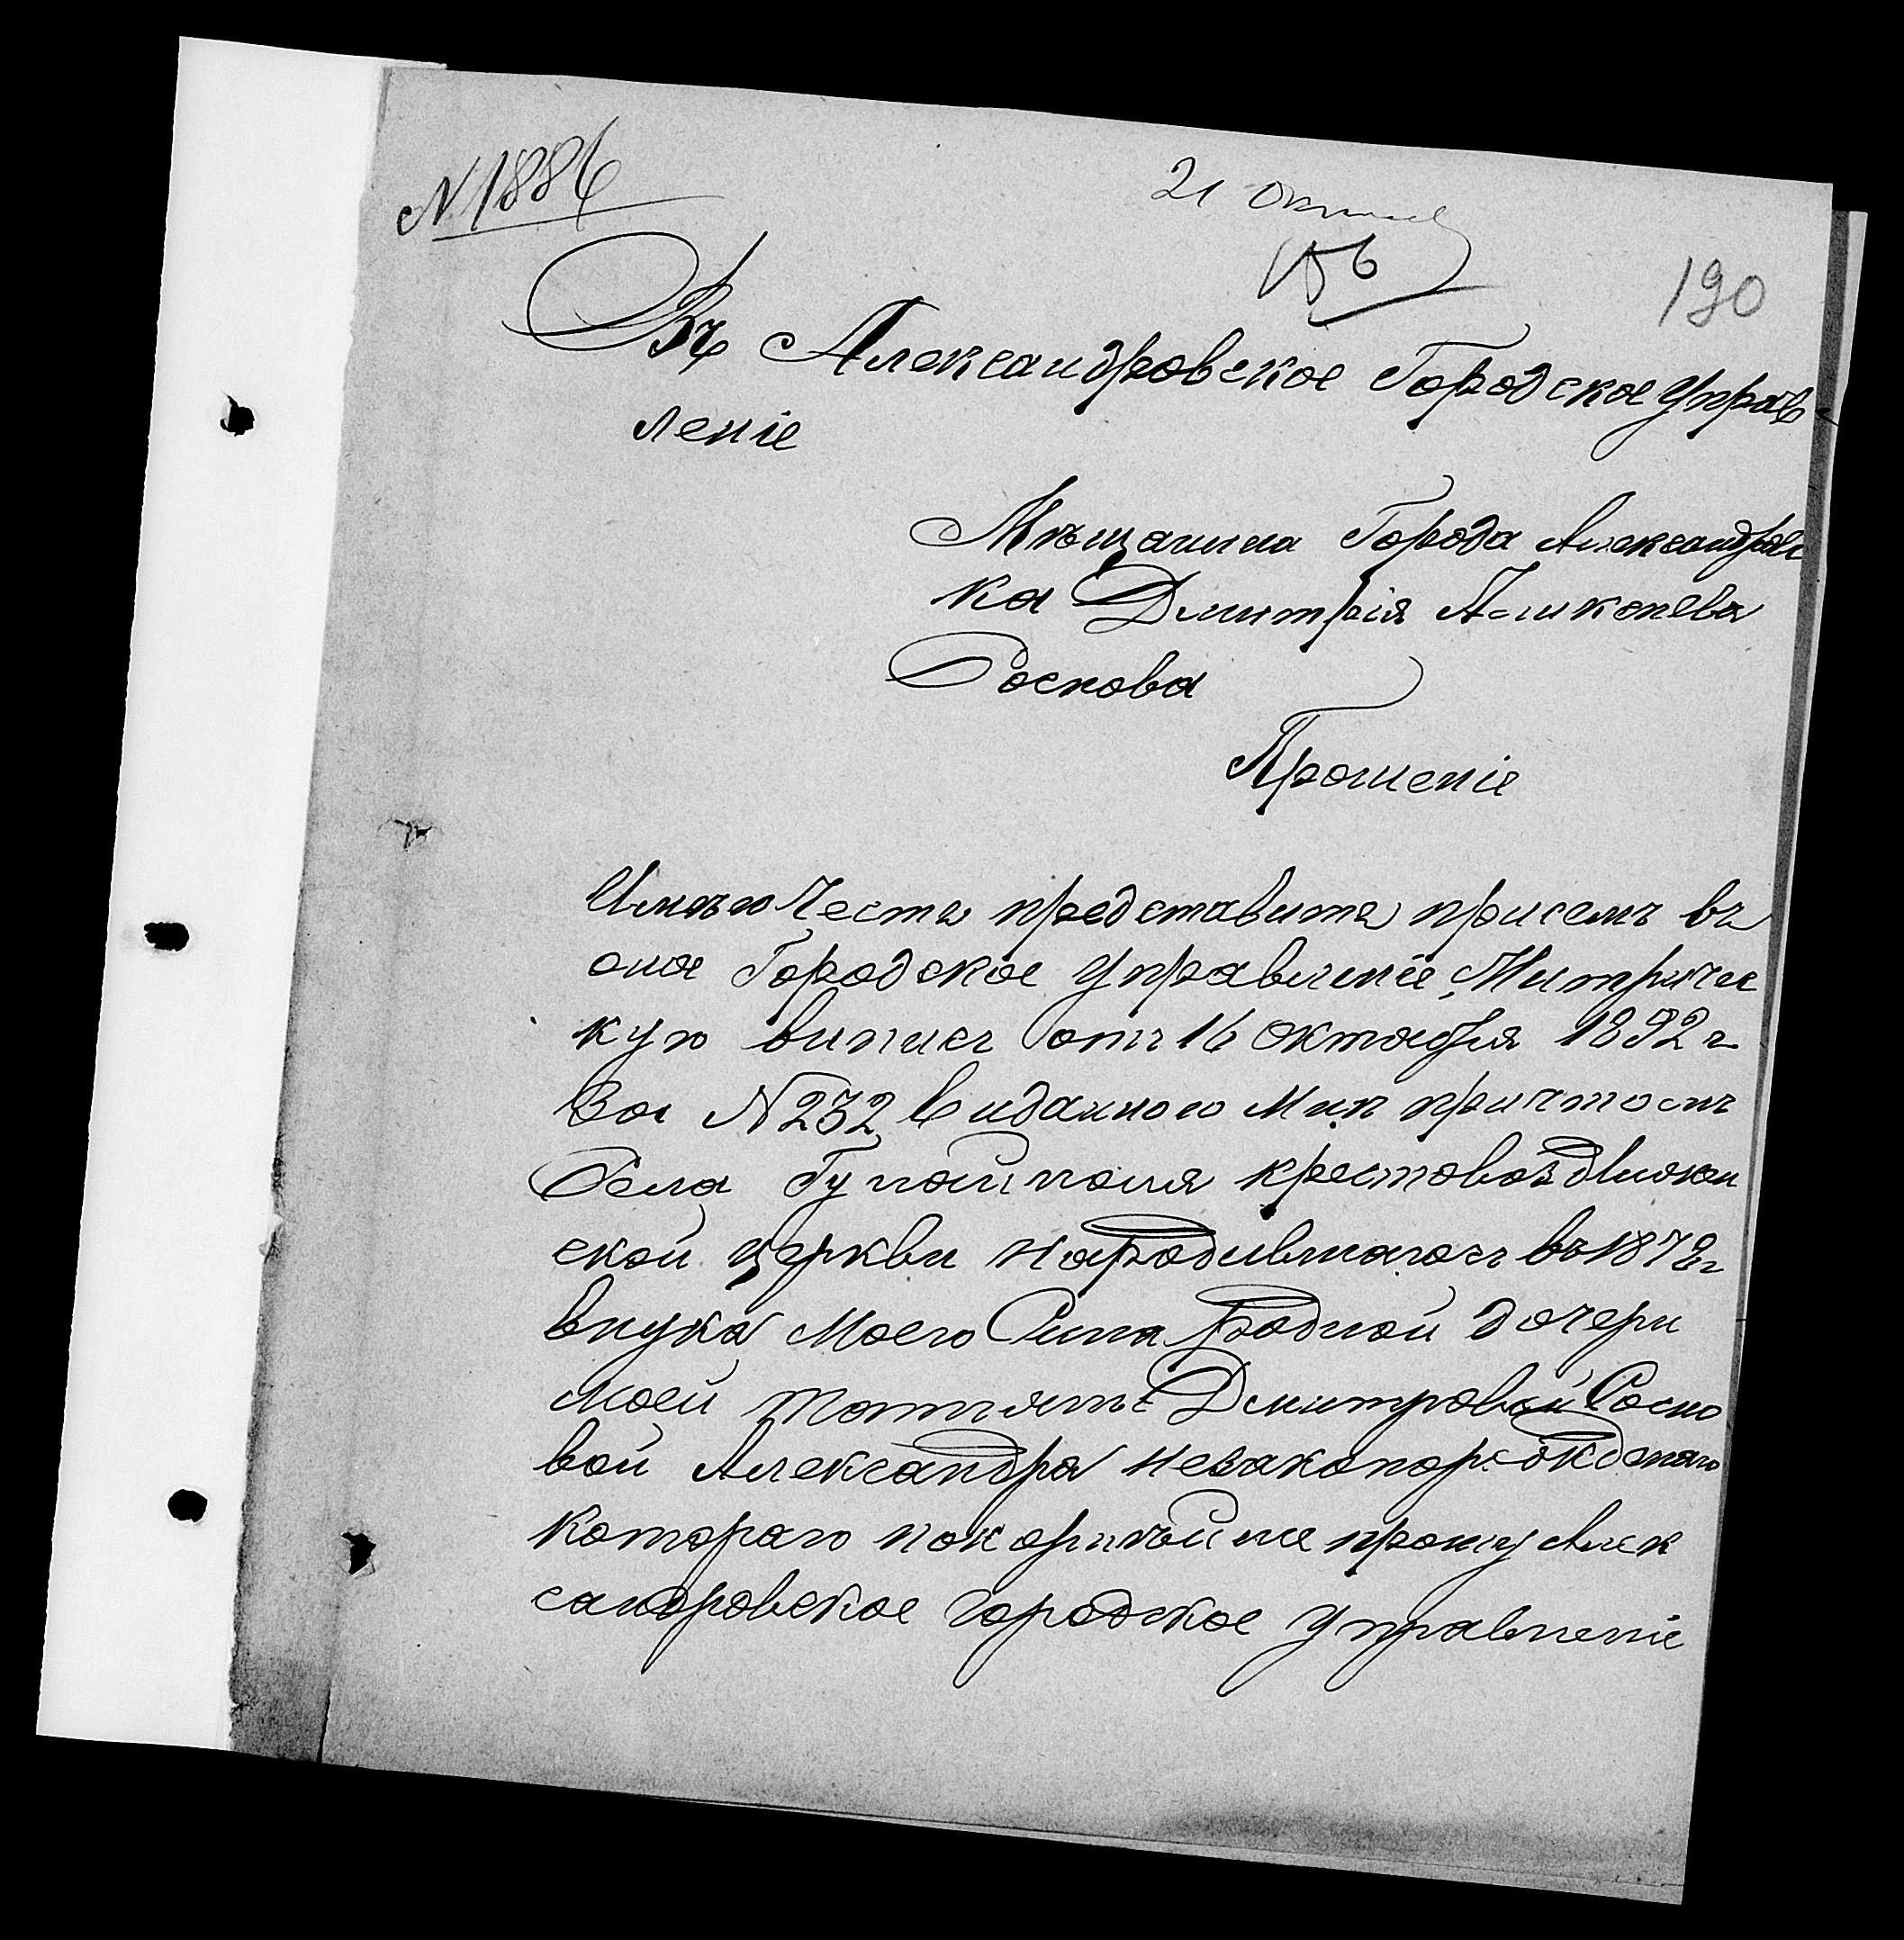 N 1886
21 Октяб
156
190
Въ Александровское Городское Управ-
леніе
Мѣщанина Города Александровс
ка Дмитрія
Соснова
Прошеніе
Имѣю Честь представить присемъ въ
оное Городское Управленіе Митричес
кую випись отъ 16 октября 1892 г
за N 232 виданною Мнѣ причтомъ
Села Гуляйполя крестовоздвижен
ской церкви народившагось въ 1872 г
внука моего Сина родной дочери
моей Татіяни Дмитровой Сосно
вой Александра незаконорожденаго
котораго покорнѣйше прошу Алек
сандровское городское управленіе